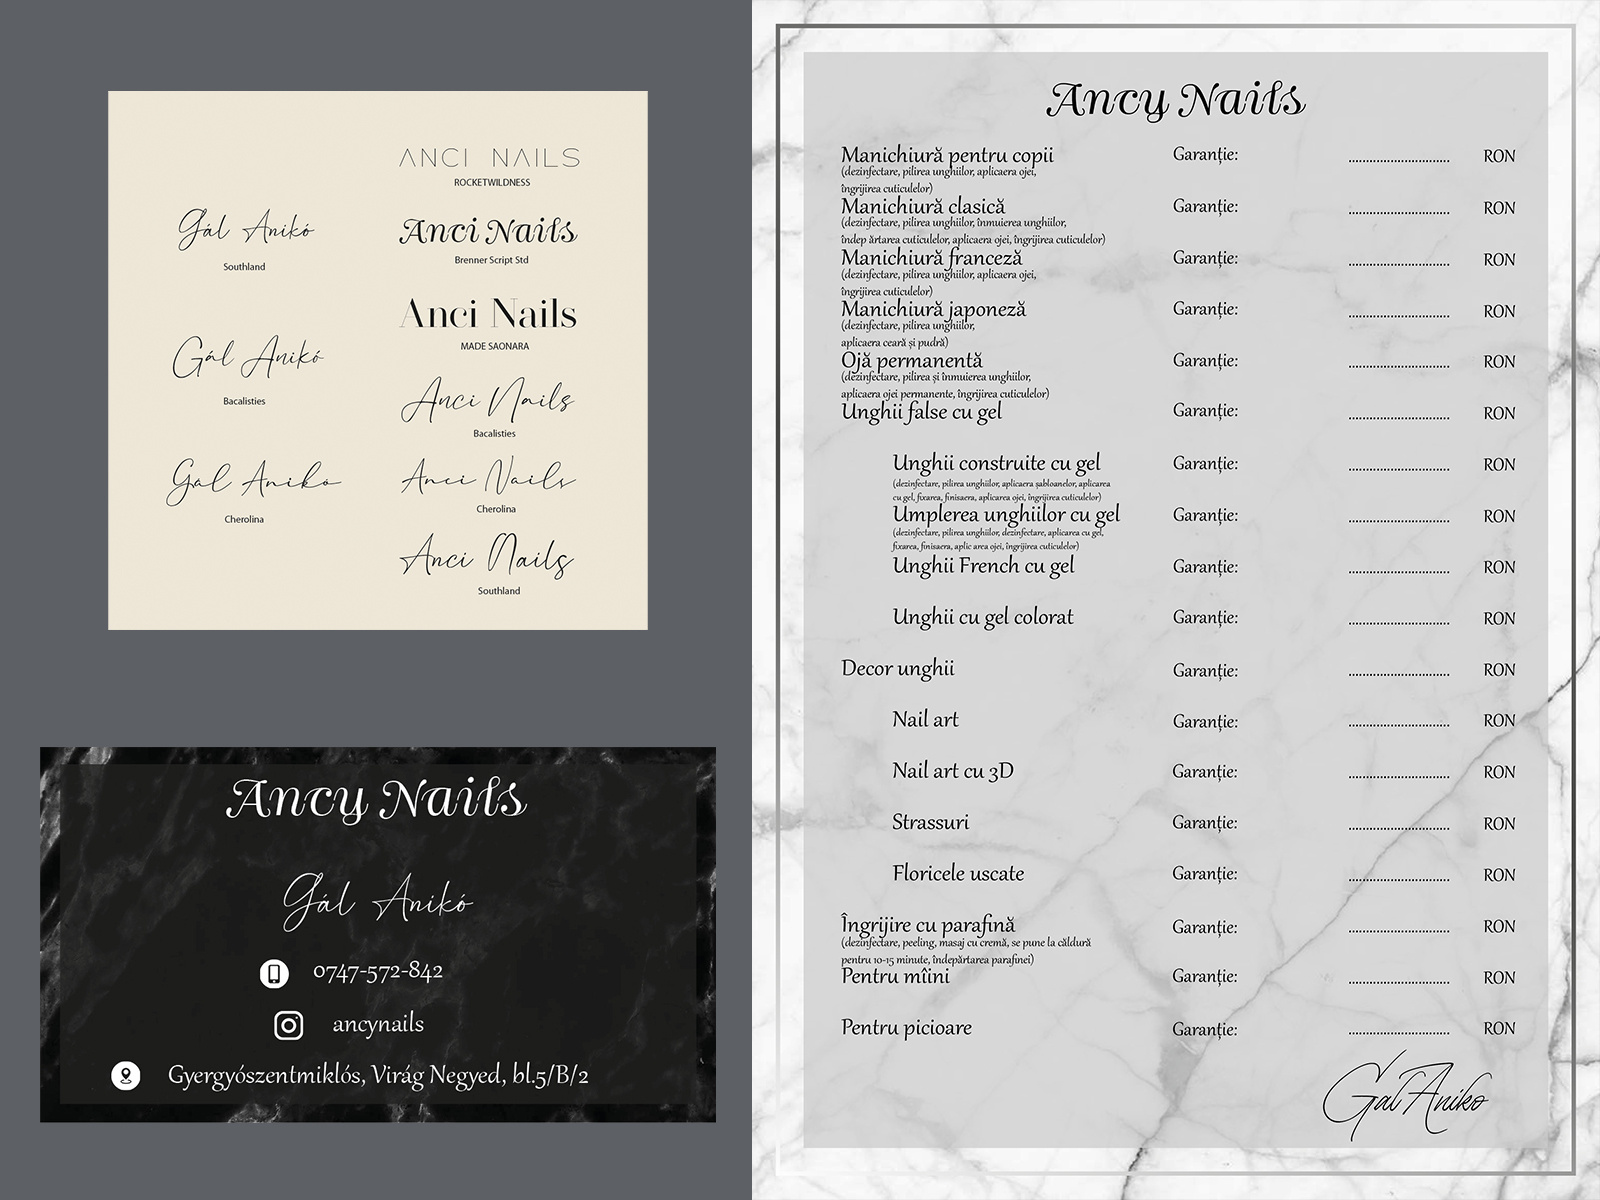 ANCI NAILS
ROCKETWILDNESS
Gál Anikó
Southland
Anci Nails
Brenner Script Std
Anci Nails
MADE SAONARA
Gál Anikó
Bacalisties
Anci Nails
Bacalisties
Gál Anikó
Cherolina
Anci Nails
Cherolina
Anci Nails
Southland
Ancy Nails
Gál Anikó
0747-572-842
ancynails
Gyergyószentmiklós, Virág Negyed, bl.5/B/2
Ancy Nails
Manichiură pentru copii Garanție: ............................. RON
(dezinfectare, pilirea unghiilor, aplicaera ojei,
îngrijirea cuticulelor)
Manichiură clasică Garanție: ............................. RON
(dezinfectare, pilirea unghiilor, înmuierea unghiilor,
îndep ărtarea cuticulelor, aplicaera ojei, îngrijirea cuticulelor)
Manichiură franceză Garanție: ............................. RON
(dezinfectare, pilirea unghiilor, aplicaera ojei,
îngrijirea cuticulelor)
Manichiură japoneză Garanție: ............................. RON
(dezinfectare, pilirea unghiilor,
aplicaera ceară și pudră)
Ojă permanentă Garanție: ............................. RON
(dezinfectare, pilirea și înmuierea unghiilor,
aplicaera ojei permanente, îngrijirea cuticulelor)
Unghii false cu gel Garanție: ............................. RON
Unghii construite cu gel Garanție: ............................. RON
(dezinfectare, pilirea unghiilor, aplicaera șabloanelor, aplicarea
cu gel, fixarea, finisaera, aplicarea ojei, îngrijirea cuticulelor)
Umplerea unghiilor cu gel Garanție: ............................. RON
(dezinfectare, pilirea unghiilor, dezinfectare, aplicarea cu gel,
fixarea, finisaera, aplic area ojei, îngrijirea cuticulelor)
Unghii French cu gel Garanție: ............................. RON
Unghii cu gel colorat Garanție: ............................. RON
Decor unghii Garanție: ............................. RON
Nail art Garanție: ............................. RON
Nail art cu 3D Garanție: ............................. RON
Strassuri Garanție: ............................. RON
Floricele uscate Garanție: ............................. RON
Îngrijire cu parafină Garanție: ............................. RON
(dezinfectare, peeling, masaj cu cremă, se pune la căldură
pentru 10-15 minute, îndepărtarea parafinei)
Pentru mîini Garanție: ............................. RON
Pentru picioare Garanție: ............................. RON
Gál Anikó